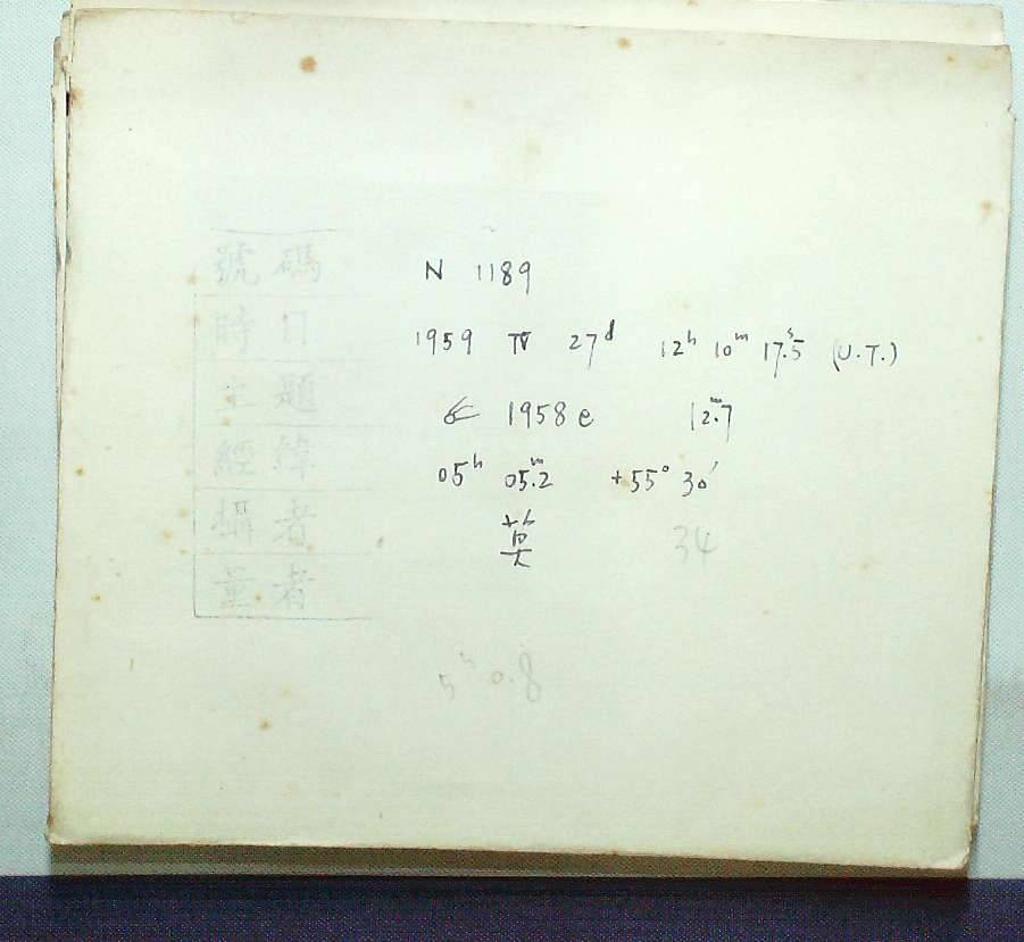 號碼 N 1189
時日 1959 IV 27ᵈ 12ʰ 10ᵐ 17ˢ.5 (U.T.)
主題 1958 e 12ᵐ.7
經緯 05ʰ 05ᵐ.2 +55° 30′
攝者 莫 34
量者
5ʰ 0.8